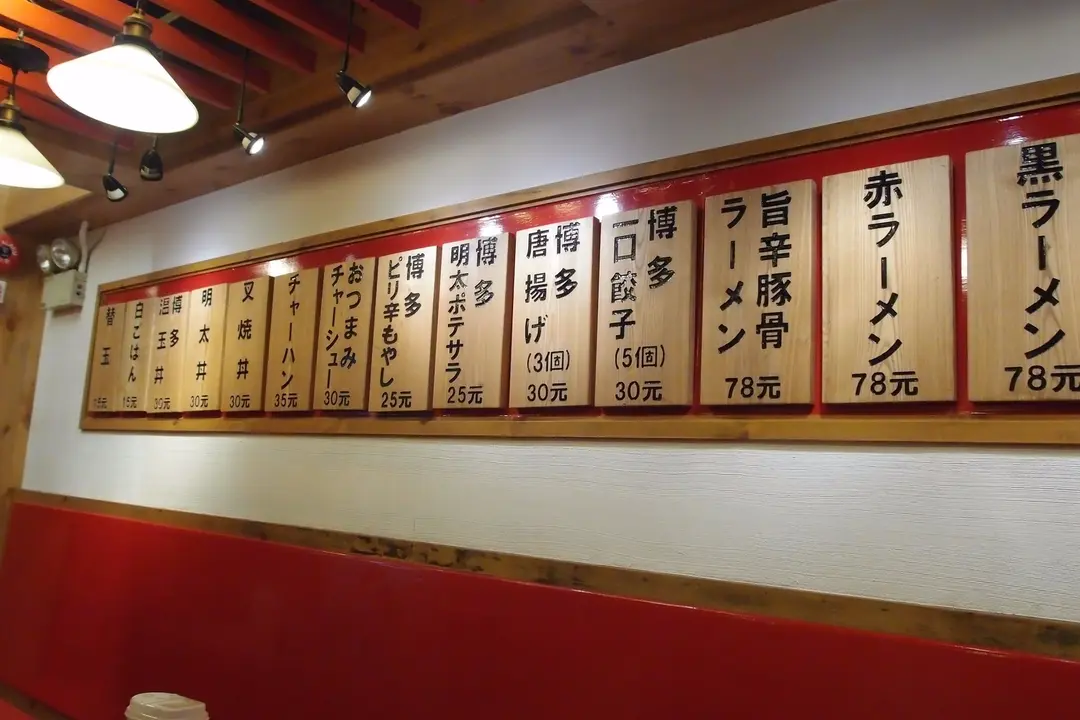 黒ラーメン
78元
赤ラーメン
78元
旨辛豚骨
ラーメン
78元
博多
一口餃子
(5個)
30元
博多
唐揚げ
(3個)
30元
博多
明太ポテサラ
25元
博多
ピリ辛もやし
25元
おつまみ
チャーシュー
30元
チャーハン
35元
叉焼丼
30元
明太丼
30元
博多
温玉丼
30元
白ごはん
15元
替玉